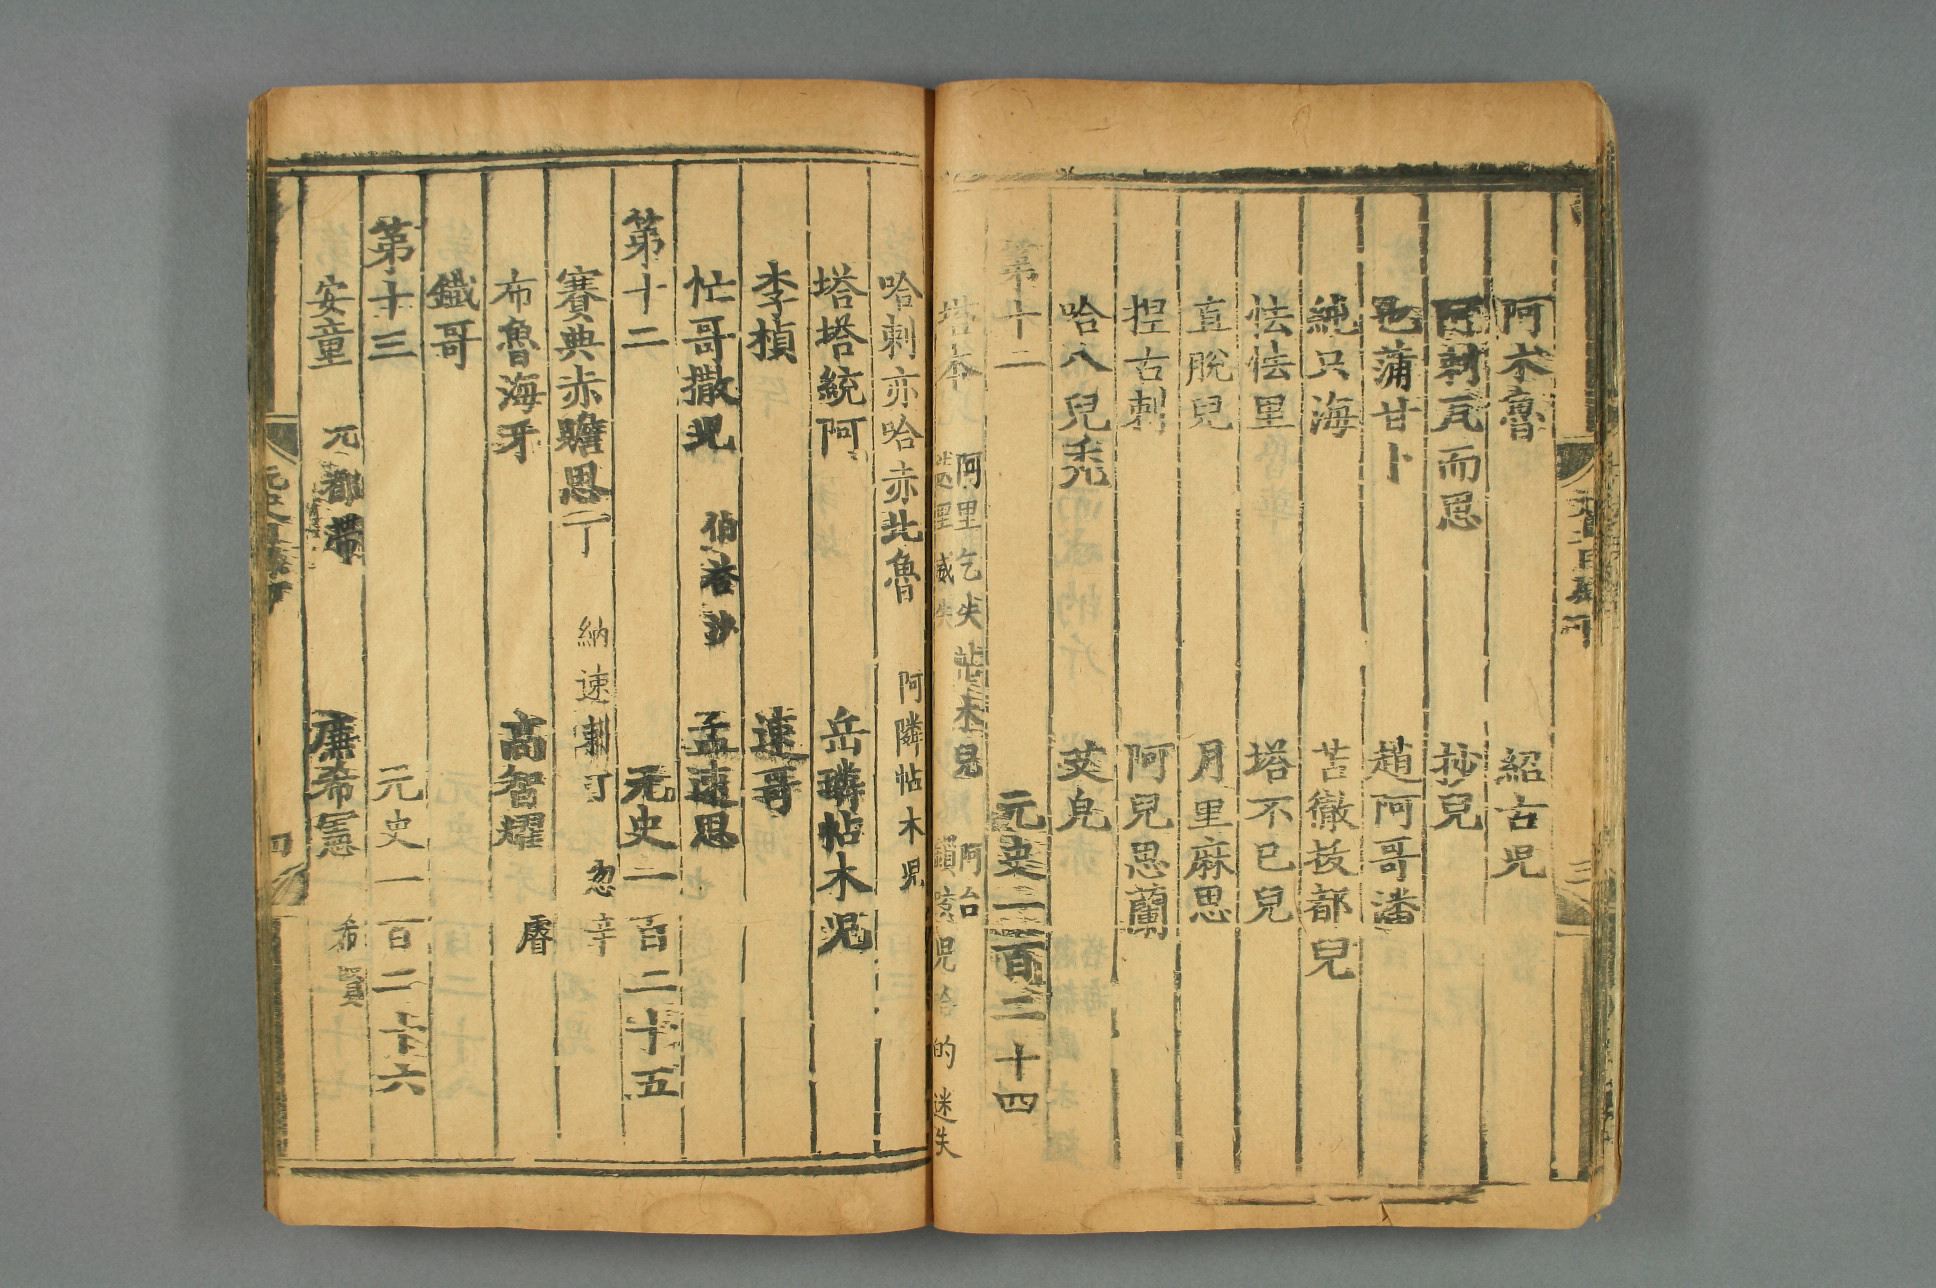 阿朮魯 紹古児
阿剌瓦而思 抄兒
苫徹拔都兒
純只海
怯怯里 塔不已兒
直脫兒 月里麻思
捏古剌 阿兒思蘭
哈八兒禿
第十一 元史一百二十四
塔本 阿里乞失帖木兒 阿台 迭里威失 鎖咬兒哈的迷失
哈剌亦哈赤北魯 阿隣帖木児
塔塔統阿 岳璘帖木児
李楨 速哥
忙哥撒児 伯荅沙 孟速思
第十二 元史一百二十五
賽典赤贍思丁 納速剌丁 忽辛
布魯海牙 高智耀 睿
鐵哥
第十三 元史一百二十六
安童 兀都帶 廉希憲 希賢
四